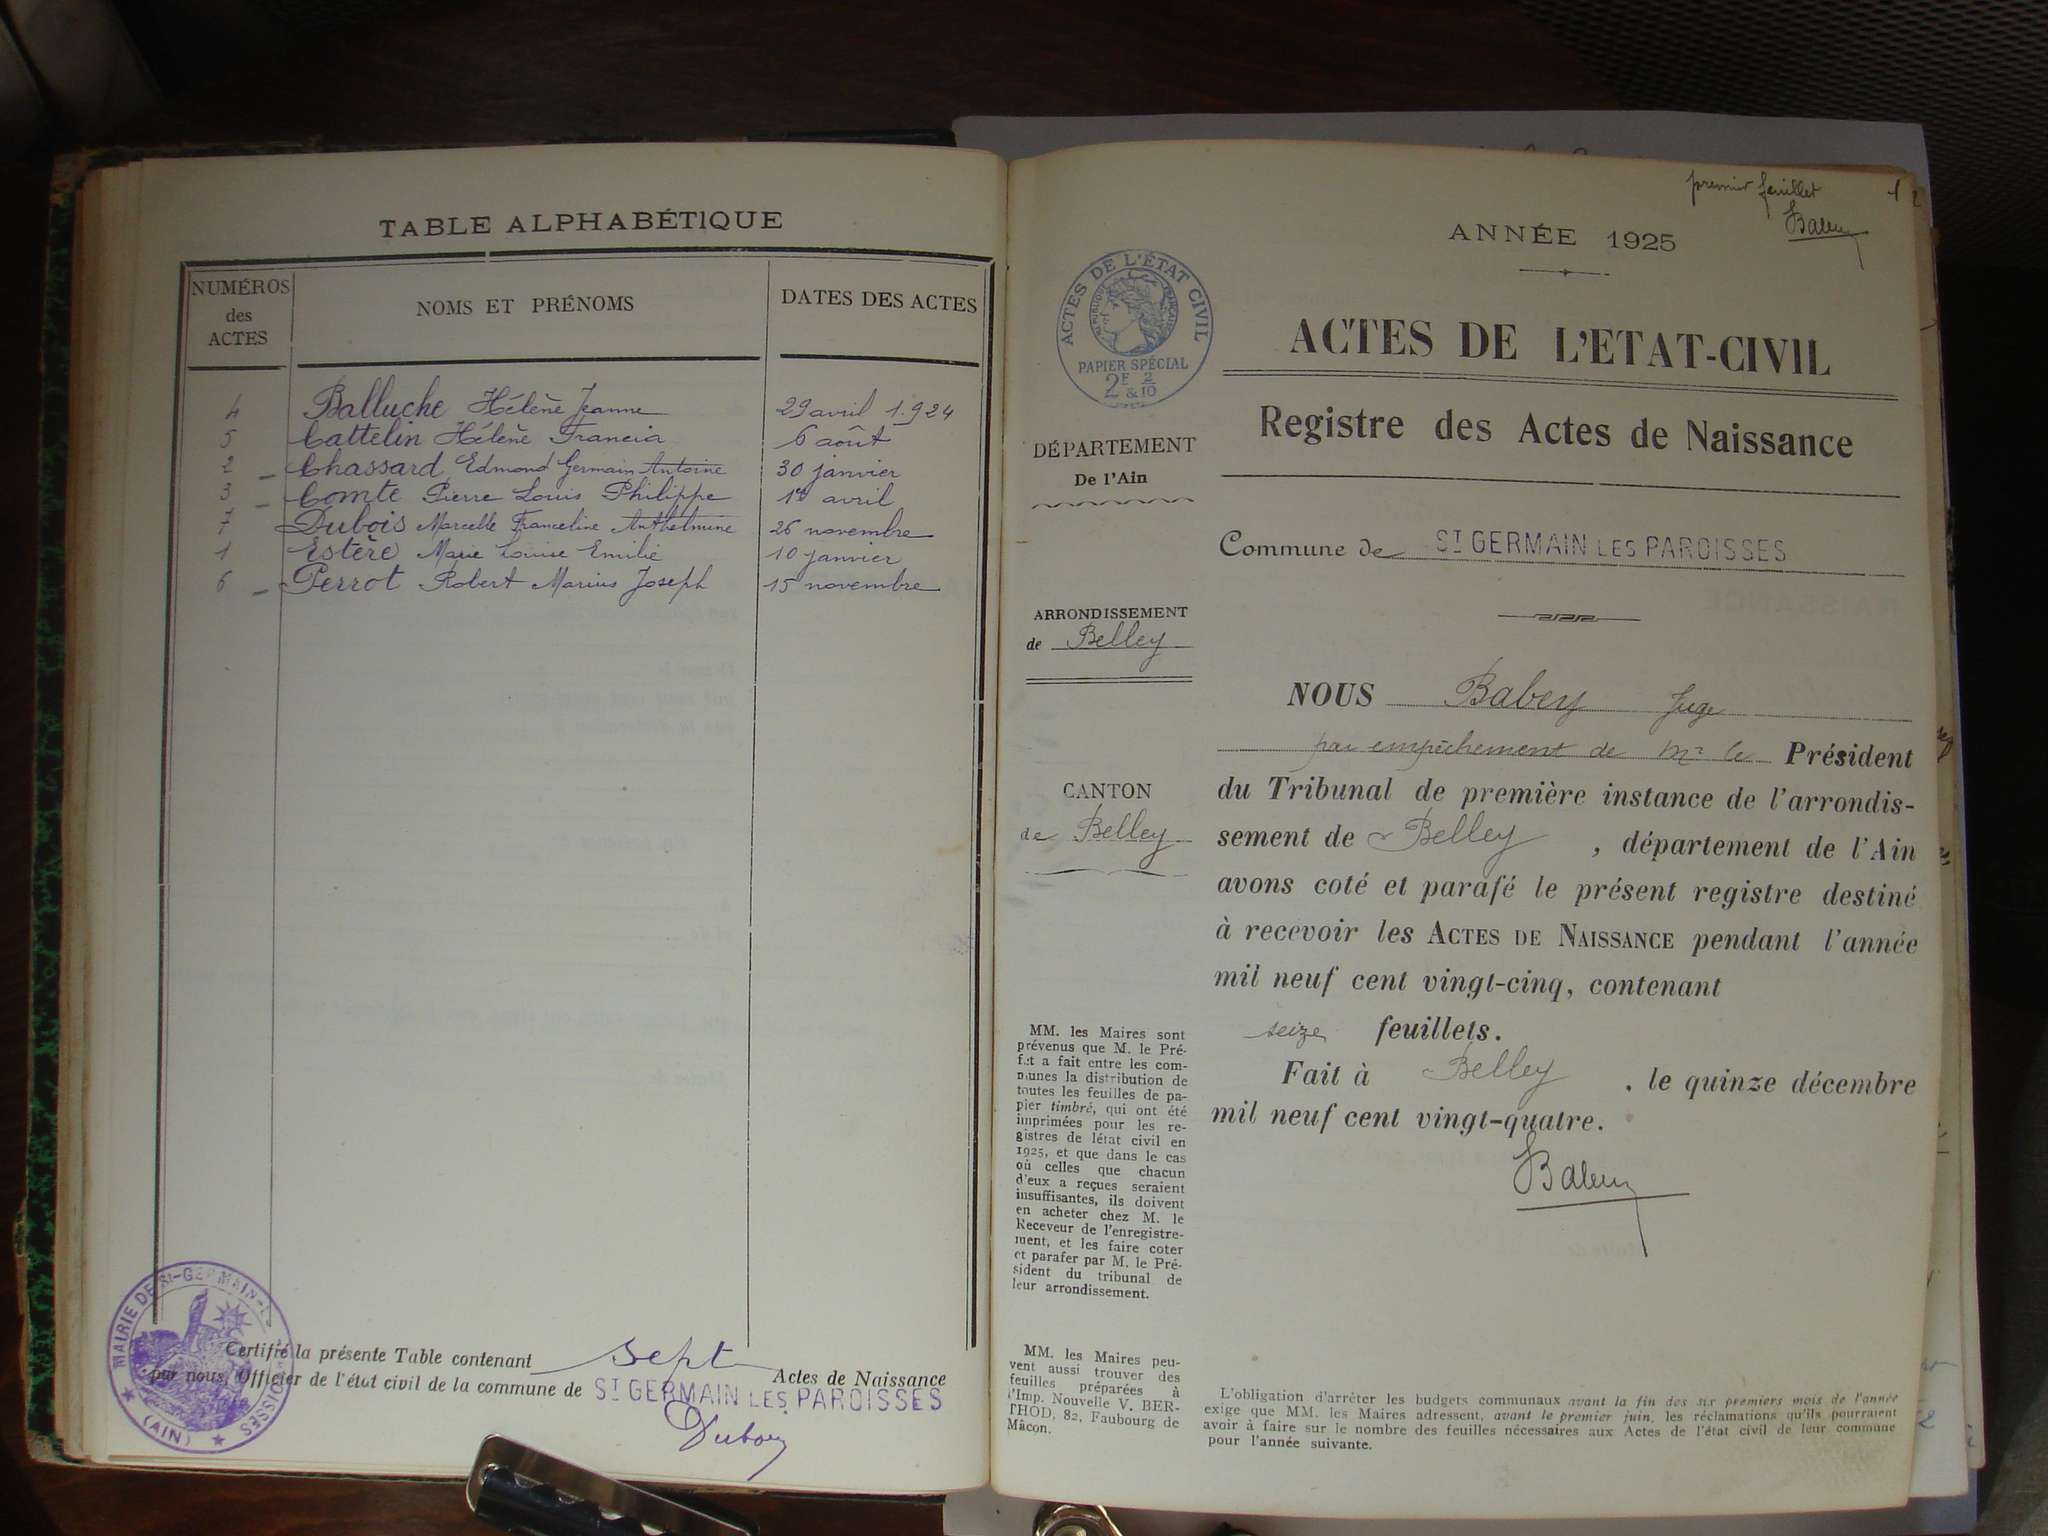 TABLE ALPHABÉTIQUE
NUMÉROS des ACTES NOMS ET PRÉNOMS DATES DES ACTES
4 Balluche Hélène Jeanne 29 avril 1.924
5 Cattelin Hélène Francia 6 août
2 Chassard Edmond Germain Antoine 30 janvier
3 Comte Pierre Louis Philippe 1er avril
7 Dubois Marcelle Franceline Anthelmine 26 novembre
1 Estère Marie Louise Emilie 10 janvier
6 Perrot Robert Marius Joseph 15 novembre
Certifié la présente Table contenant sept Actes de Naissance
par nous, Officier de l'état civil de la commune de ST GERMAIN LES PAROISSES
MAIRIE DE ST-GERMAIN-L PAROISSES
(AIN)
premier feuillet 1
ANNÉE 1925
ACTES DE L'ÉTAT CIVIL
RÉPUBLIQUE FRANÇAISE
PAPIER SPÉCIAL
2F & 2/10
ACTES DE L'ETAT-CIVIL
Registre des Actes de Naissance
DÉPARTEMENT
De l'Ain
Commune de ST GERMAIN LES PAROISSES
ARRONDISSEMENT
de Belley
CANTON
de Belley
NOUS Babey Juge
par empêchement de Mr le Président
du Tribunal de première instance de l'arrondis-
sement de Belley, département de l'Ain
avons coté et parafé le présent registre destiné
à recevoir les ACTES DE NAISSANCE pendant l'année
mil neuf cent vingt-cinq, contenant
seize feuillets.
Fait à Belley, le quinze décembre
mil neuf cent vingt-quatre.
MM. les Maires sont
prévenus que M. le Pré-
fet a fait entre les com-
munes la distribution de
toutes les feuilles de pa-
pier timbré, qui ont été
imprimées pour les re-
gistres de létat civil en
1925, et que dans le cas
où celles que chacun
d'eux a reçues seraient
insuffisantes, ils doivent
en acheter chez M. le
Receveur de l'enregistre-
ment, et les faire coter
et parafer par M. le Pré-
sident du tribunal de
leur arrondissement.
MM. les Maires peu-
vent aussi trouver des
feuilles préparées à
l'Imp. Nouvelle V. BER-
THOD, 82, Faubourg de
Mâcon.
L'obligation d'arrêter les budgets communaux avant la fin des six premiers mois de l'année
exige que MM. les Maires adressent, avant le premier juin, les réclamations qu'ils pourraient
avoir à faire sur le nombre des feuilles nécessaires aux Actes de l'état civil de leur commune
pour l'année suivante.